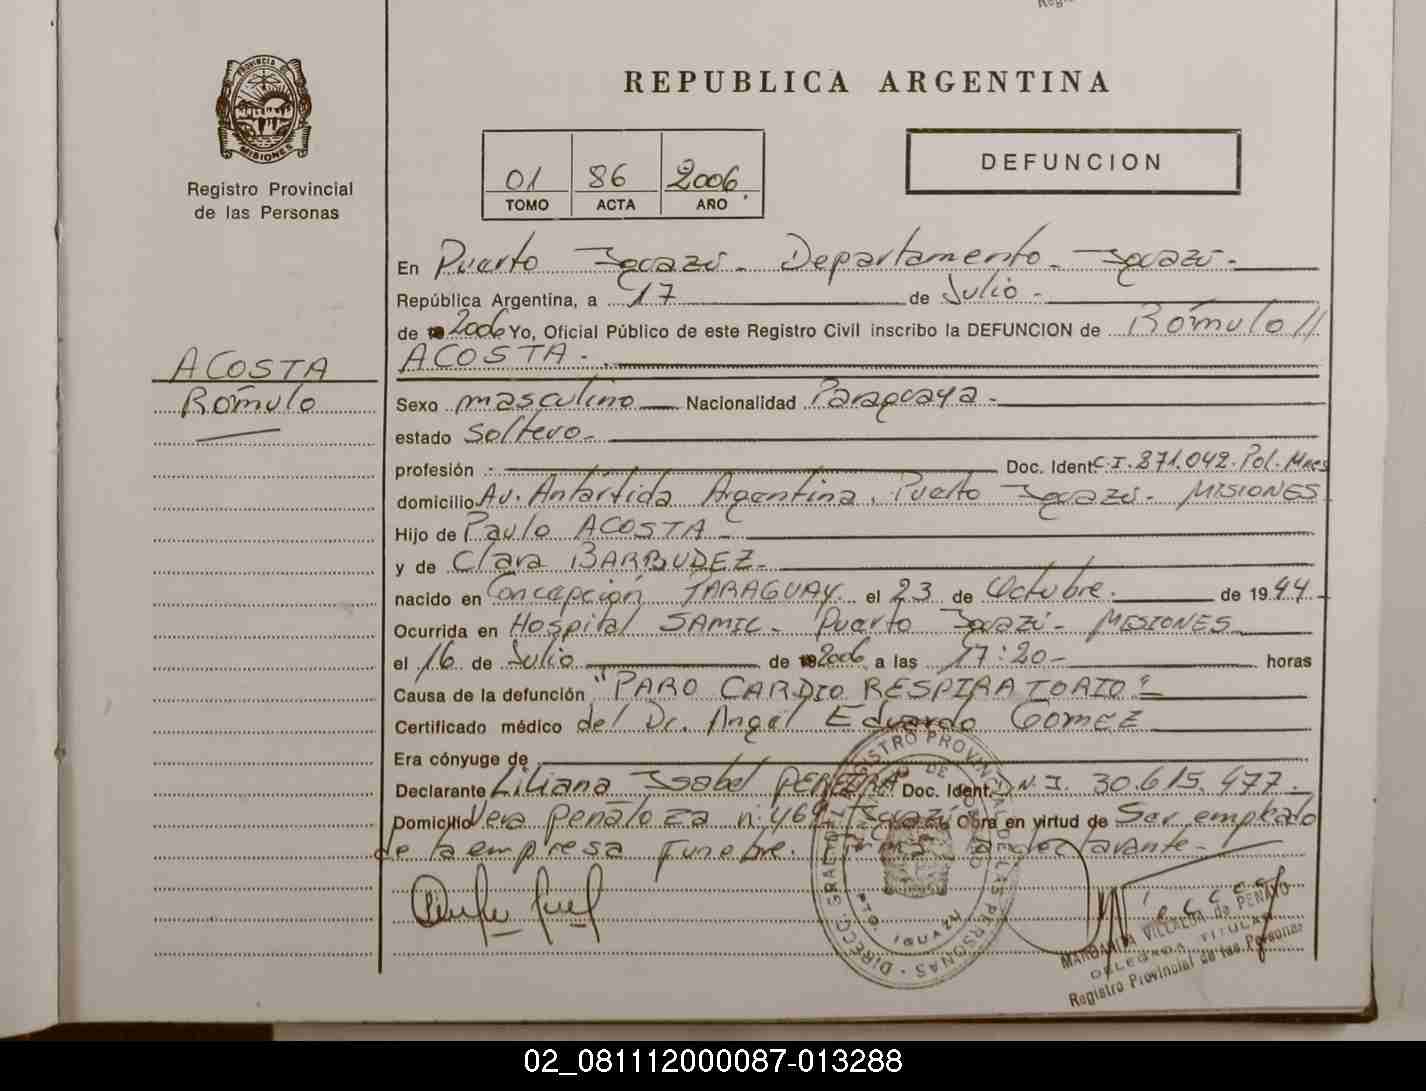 PROVINCIA D
MISIONES
Registro Provincial
de las Personas
REPUBLICA ARGENTINA
DEFUNCION
01 86 2006.
TOMO ACTA AÑO
En Puerto Iguazú - Departamento - Iguazú -
República Argentina, a 17 de Julio -
de 2006 Yo, Oficial Público de este Registro Civil inscribo la DEFUNCION de Rómulo //
ACOSTA -
ACOSTA
Rómulo
Sexo masculino Nacionalidad Paraguaya -
estado soltero -
profesión - Doc. Ident. C.I. 871.042. Pol. Mnes
domicilio Av. Antártida Argentina. Puerto Iguazú - MISIONES
Hijo de Paulo ACOSTA -
y de Clara BARBUDEZ -
nacido en Concepción PARAGUAY. el 23 de Octubre. de 1944. -
Ocurrida en Hospital SAMIC - Puerto Iguazú - MISIONES
el 16 de Julio de 2006 a las 17:20 - horas
Causa de la defunción "PARO CARDIO RESPIRATORIO" =
Certificado médico del Dr. Angel Eduardo GOMEZ
Era cónyuge de
Declarante Liliana Isabel PEREIRA Doc. Ident. D.N.I. 30.615.477.
Domicilio Vera Peñaloza n: 469 Iguazú Obra en virtud de Ser empleado
de la empresa Funebre. Firma la declarante -
DIRECC. GRAL. DEL REGISTRO PROVINCIAL DE LAS PERSONAS
PTO. IGUAZU
MARGARITA VILLALBA de PENAYO
DELEGADA TITULAR
Registro Provincial de las Personas
02_081112000087-013288